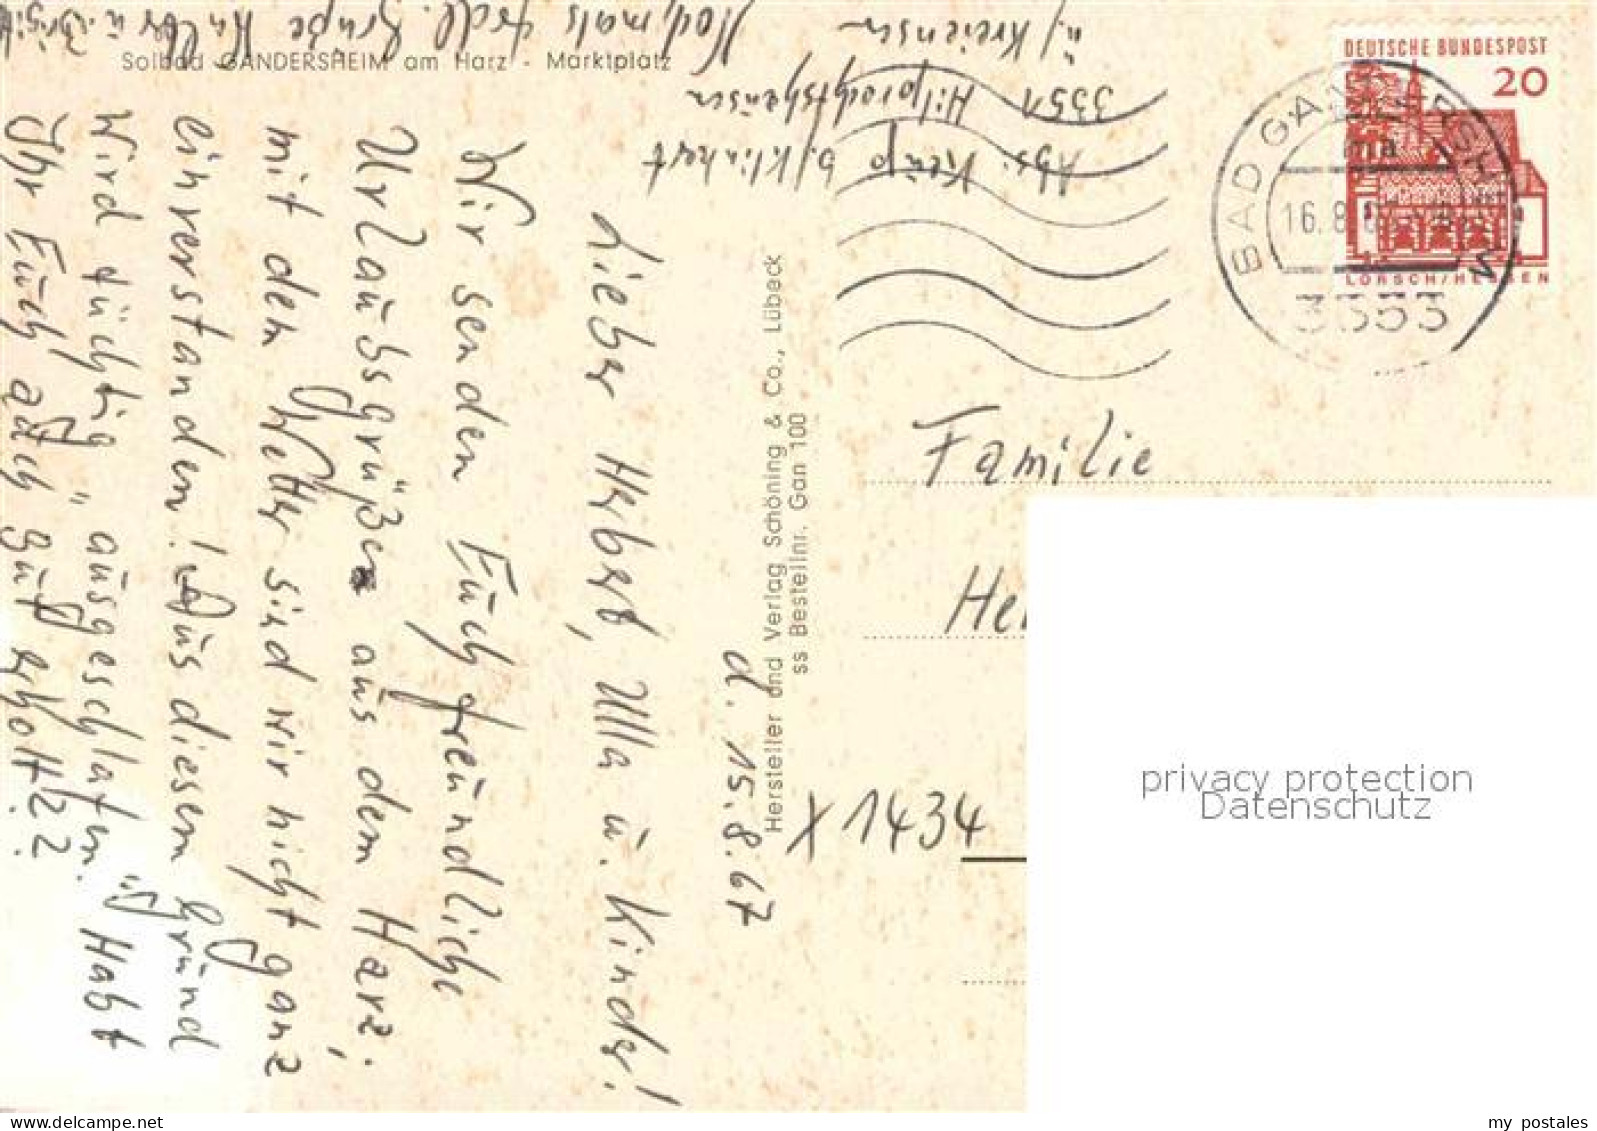 Solbad GANDERSHEIM am Harz - Marktplatz
d. 15.8.67
Lieber Herbert, Ulla u. Kinder!
Wir senden Euch freundliche
Urlaubsgrüße aus dem Harz;
mit dem Wetter sind wir nicht ganz
einverstanden! Aus diesem Grund
wird tüchtig „ausgeschlafen." Habt
Ihr Euch auch gut erholt??
Nochmals frdl. Grüße
Abs. Kemp b/ Klinkert
3351 Hilprechtshausen
ü/ Kreiensen
Hersteller und Verlag Schöning & Co., Lübeck
ss Bestellnr. Gan 100
DEUTSCHE BUNDESPOST
20
LORSCH/HESSEN
BAD GANDERSHEIM
16.8.
3353
Familie
He
X 1434
privacy protection
Datenschutz
www.delcampe.net
my_postales